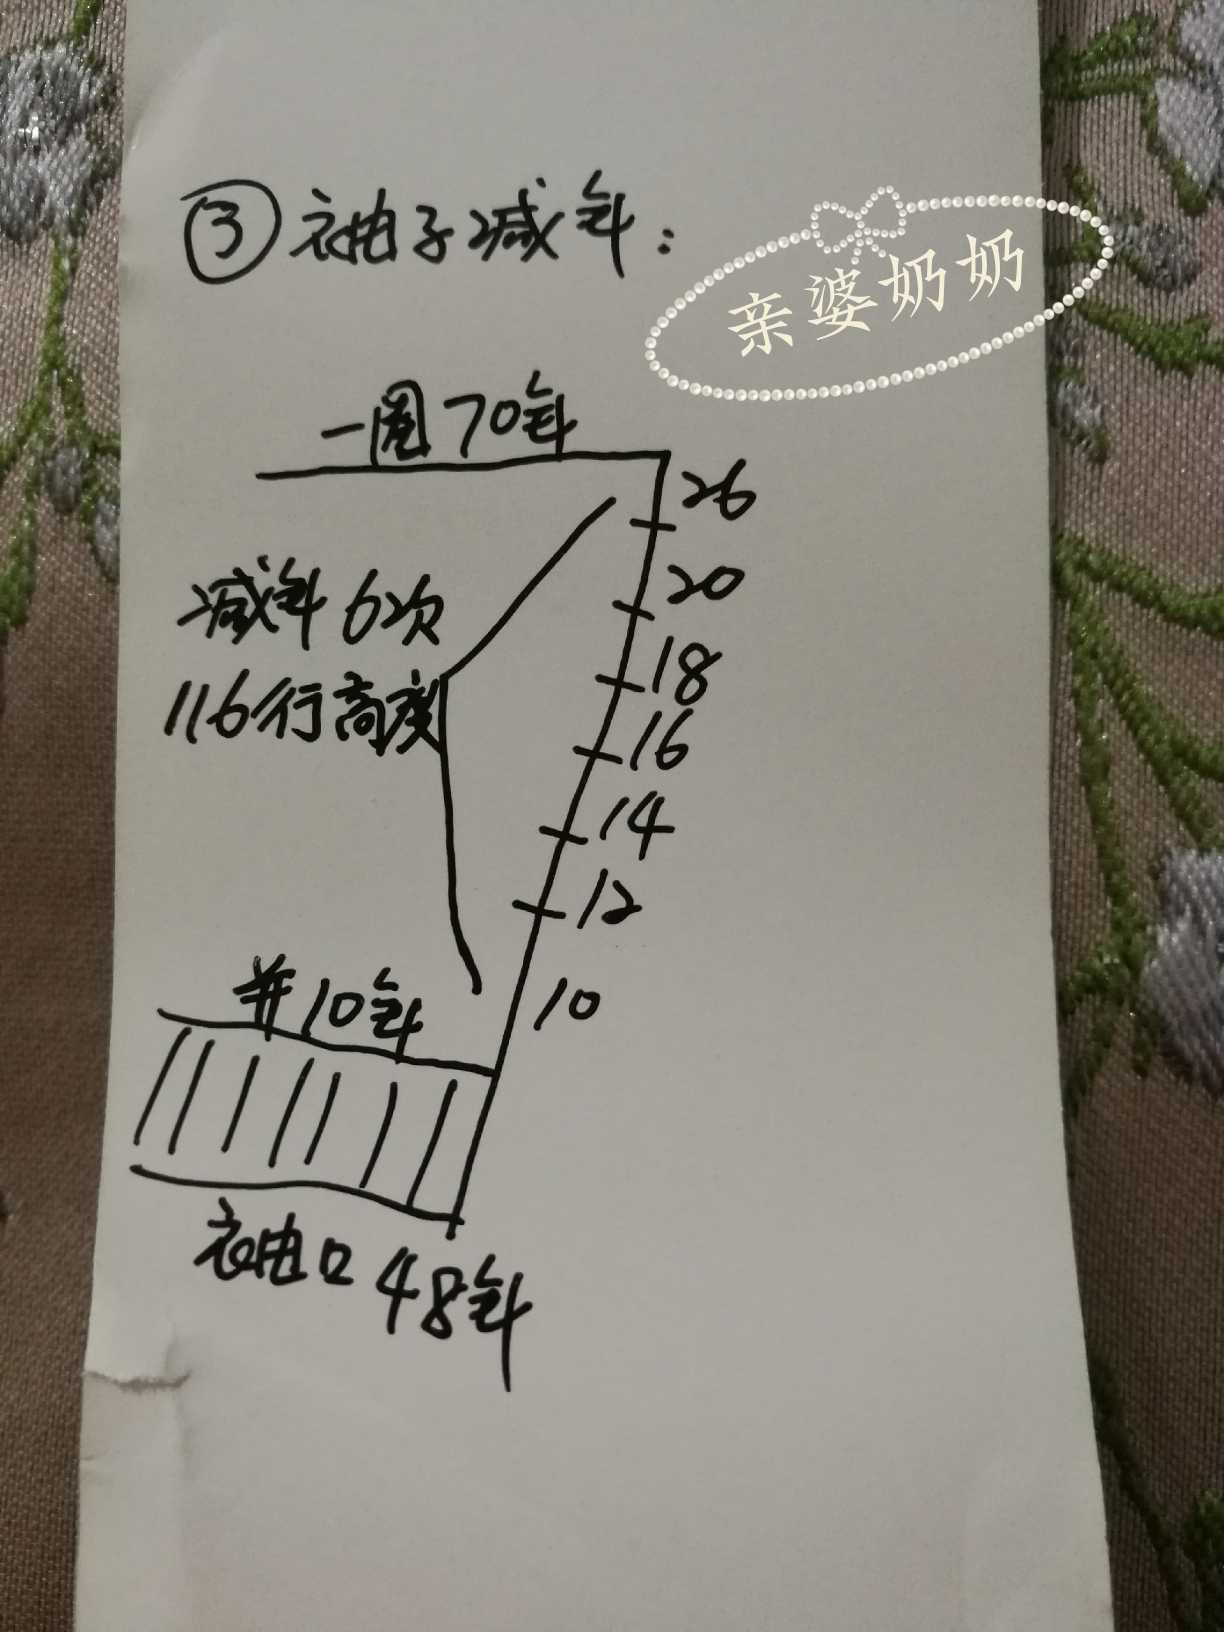 ③衣袖子减针：
亲婆奶奶
一圈70针
26
20
减针6次
18
116行高度
16
14
12
并10针
10
衣袖口48针